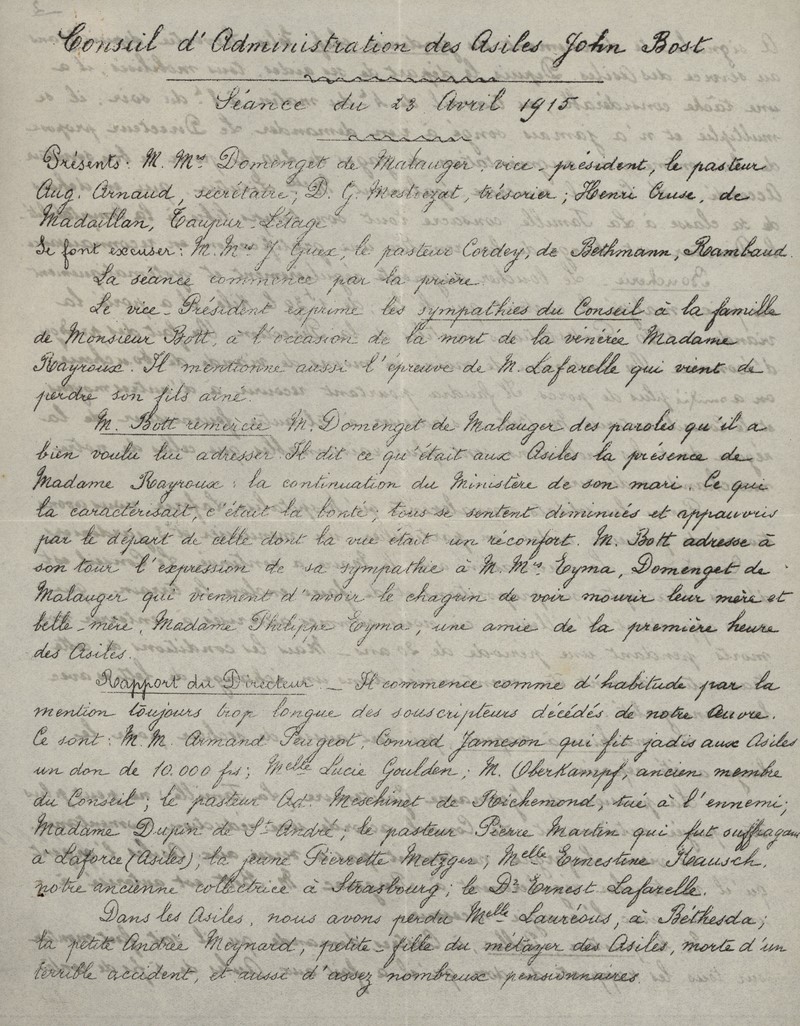 Conseil d'Administration des Asiles John Bost
Séance du 23 Avril 1915
Présents: M. Mrs Domenget de Malauger, vice-président, le pasteur
Aug. Arnaud, secrétaire; D. G. Mestrezat, trésorier; Henri Cruse, de
Madaillan, Taupur-Létage
Se font excuser: M. Mrs J Guex, le pasteur Cordey, de Bethmann, Rambaud.
La séance commence par la prière.
Le vice-Président exprime les sympathies du Conseil à la famille
de Monsieur Bott, à l'occasion de la mort de la vénérée Madame
Rayroux. Il mentionne aussi l'épreuve de M. Lafarelle qui vient de
perdre son fils aîné.
M. Bott remercie M. Domenget de Malauger des paroles qu'il a
bien voulu lui adresser. Il dit ce qu'était aux Asiles la présence de
Madame Rayroux: la continuation du Ministère de son mari. Ce qui
la caractérisait, c'était la bonté; tous se sentent diminués et appauvris
par le départ de celle dont la vue était un réconfort. M. Bott adresse à
son tour l'expression de sa sympathie à M. Mrs Eyma, Domenget de
Malauger qui viennent d'avoir le chagrin de voir mourir leur mère et
belle-mère, Madame Philippe Eyma, une amie de la première heure
des Asiles.
Rapport du Directeur. _ Il commence comme d'habitude par la
mention toujours trop longue des souscripteurs décédés de notre Œuvre.
Ce sont: M. M. Armand Peugeot, Conrad Jameson qui fit jadis aux Asiles
un don de 10.000 frs; Melle Lucie Goulden; M. Oberkampf, ancien membre
du Conseil; le pasteur Ad. Meschinet de Richemond, tué à l'ennemi;
Madame Dupin de St André; le pasteur Pierre Martin qui fut suffragant
à Laforce (Asiles); la jeune Pierrette Metzger; Melle Ernestine Rausch,
notre ancienne collectrice à Strasbourg; le Dr Ernest Lafarelle.
Dans les Asiles, nous avons perdu Melle Lauréous, à Béthesda;
la petite Andrée Meynard, petite-fille du métayer des Asiles, morte d'un
terrible accident, et aussi d'assez nombreux pensionnaires.